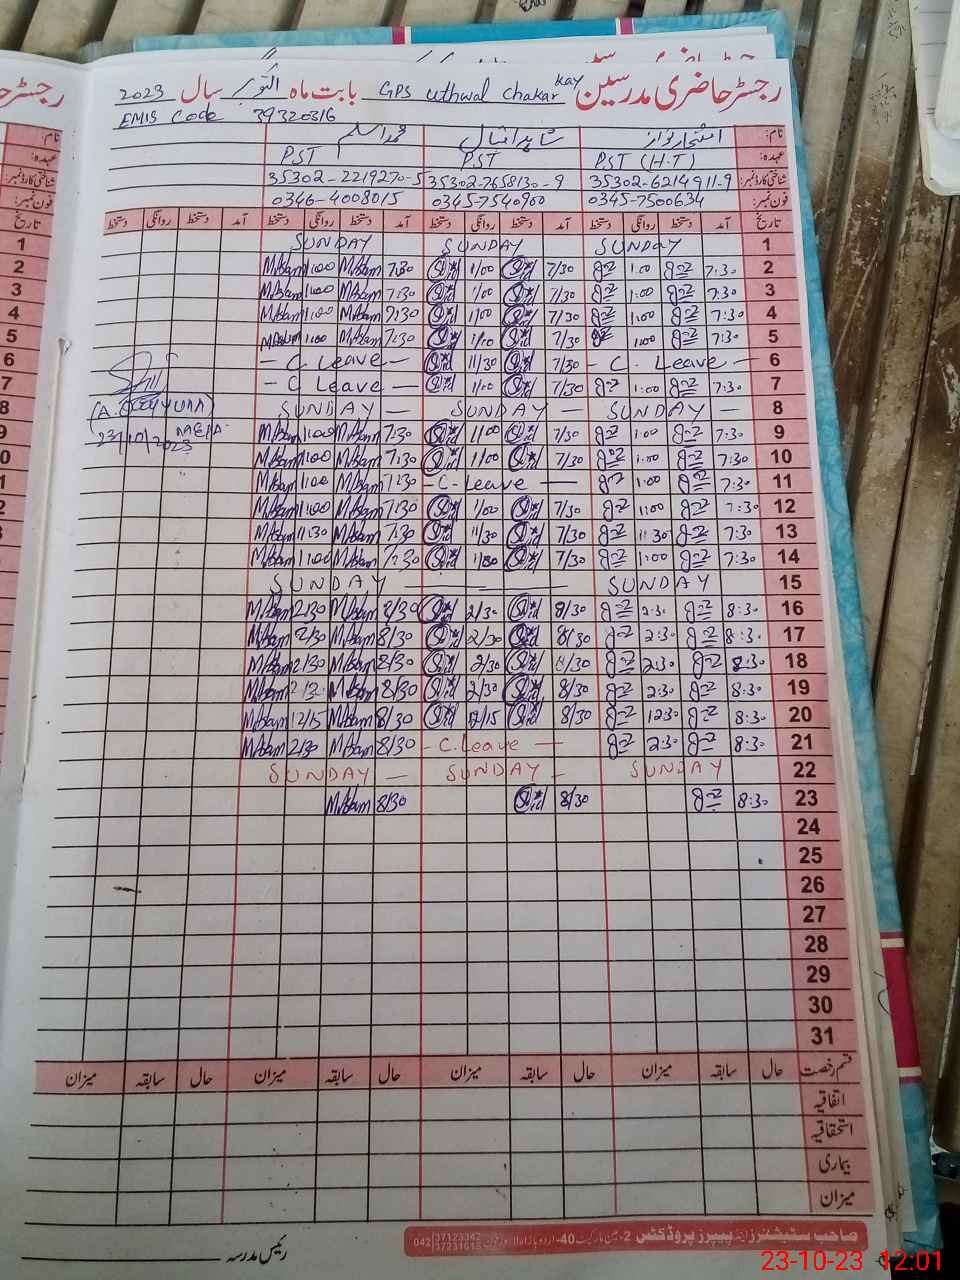 رجسٹر حاضری مدرسین GPS Uthwal Chakar Kay بابت ماہ اکتوبر سال 2023
EMIS Code 39320316
نام: افتخار نواز شاہد اقبال محمد اسلم
عہدہ: PST (H.T) PST PST
شناختی کارڈ نمبر: 35302-6214911-9 35302-7658130-9 35302-2219270-5
فون نمبر: 0345-7500634 0345-7540900 0346-4008015
تاریخ آمد دستخط روانگی دستخط آمد دستخط روانگی دستخط آمد دستخط روانگی دستخط آمد دستخط روانگی دستخط
1 SUNDAY SUNDAY SUNDAY
2 7:30 1:00 7/30 1/00 7:30 M.Aslam 1:00 M.Aslam
3 7:30 1:00 7/30 1/00 7:30 M.Aslam 1:00 M.Aslam
4 7:30 1:00 7/30 1/00 7:30 M.Aslam 1:00 M.Aslam
5 7:30 1:00 7/30 1/00 7:30 M.Aslam 1:00 M.Aslam
6 - C. Leave - 7/30 11/30 - C. Leave -
7 7:30 1:00 7/30 1/00 - C Leave -
8 SUNDAY — SUNDAY — SUNDAY —
9 7:30 1:00 7/30 1/00 7:30 M.Aslam 1:00 M.Aslam
10 7:30 1:00 7/30 1/00 7:30 M.Aslam 1:00 M.Aslam
11 7:30 1:00 - C. Leave — 7:30 M.Aslam 1:00 M.Aslam
12 7:30 1:00 7/30 1/00 7:30 M.Aslam 1:00 M.Aslam
13 7:30 11:30 7/30 11/30 7:30 M.Aslam 11:30 M.Aslam
14 7:30 1:00 7/30 1/00 7:30 M.Aslam 1:00 M.Aslam
15 SUNDAY SUNDAY
16 8:30 2:30 8/30 2/30 8/30 M.Aslam 2/30 M.Aslam
17 8:30 2:30 8/30 2/30 8/30 M.Aslam 2/30 M.Aslam
18 8:30 2:30 8/30 2/30 8/30 M.Aslam 2/30 M.Aslam
19 8:30 2:30 8/30 2/30 8/30 M.Aslam 2/30 M.Aslam
20 8:30 12:30 8/30 12/15 8/30 M.Aslam 12/15 M.Aslam
21 8:30 2:30 - C. Leave — 8/30 M.Aslam 2/30 M.Aslam
22 SUNDAY SUNDAY - SUNDAY -
23 8:30 8/30 8/30 M.Aslam
24
25
26
27
28
29
30
31
(A. Qayyum)
23/10/2023
قسم رخصت حال سابقہ میزان حال سابقہ میزان حال سابقہ میزان حال سابقہ میزان
اتفاقیہ
استحقاقیہ
بیماری
میزان
صاحب سٹیشنرز اینڈ پیپرز پروڈکٹس 042 37123342 37231615
رئیس مدرسہ
23-10-23 12:01